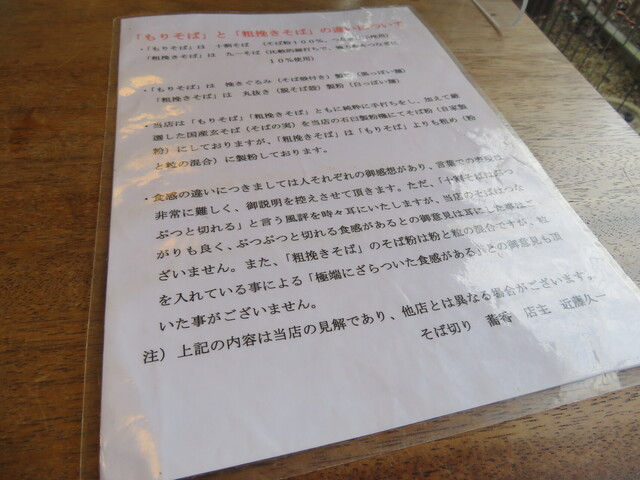 「もりそば」と「粗挽きそば」の違いについて
・「もりそば」は 十割そば (そば粉100%、つなぎ
「粗挽きそば」は 九一そば (比較的細打ちで、強力粉をつなぎに
10%使用)
・「もりそば」は 挽きぐるみ(そば殻付き)製粉(黒っぽい麺)
「粗挽きそば」は 丸抜き(脱そば殻)製粉(白っぽい麺)
・当店は「もりそば」「粗挽きそば」ともに純粋に手打ちをし、加えて厳
選した国産玄そば(そばの実)を当店の石臼製粉機にてそば粉(自家製
粉)にしておりますが、「粗挽きそば」は「もりそば」よりも粗め(粉
と粒の混合)に製粉しております。
・食感の違いにつきましては人それぞれの御感想があり、言葉での表現は
非常に難しく、御説明を控えさせて頂きます。ただ、「十割そばはぶつ
ぶつと切れる」と言う風評を時々耳にいたしますが、当店のそばはつな
がりも良く、ぶつぶつと切れる食感があるとの御意見は耳にした事はご
ざいません。また、「粗挽きそば」のそば粉は粉と粒の混合ですが、粒
を入れている事による「極端にざらついた食感がある」との御意見も頂
いた事がございません。
注)上記の内容は当店の見解であり、他店とは異なる場合がございます。
そば切り 蕎香 店主 近藤久一